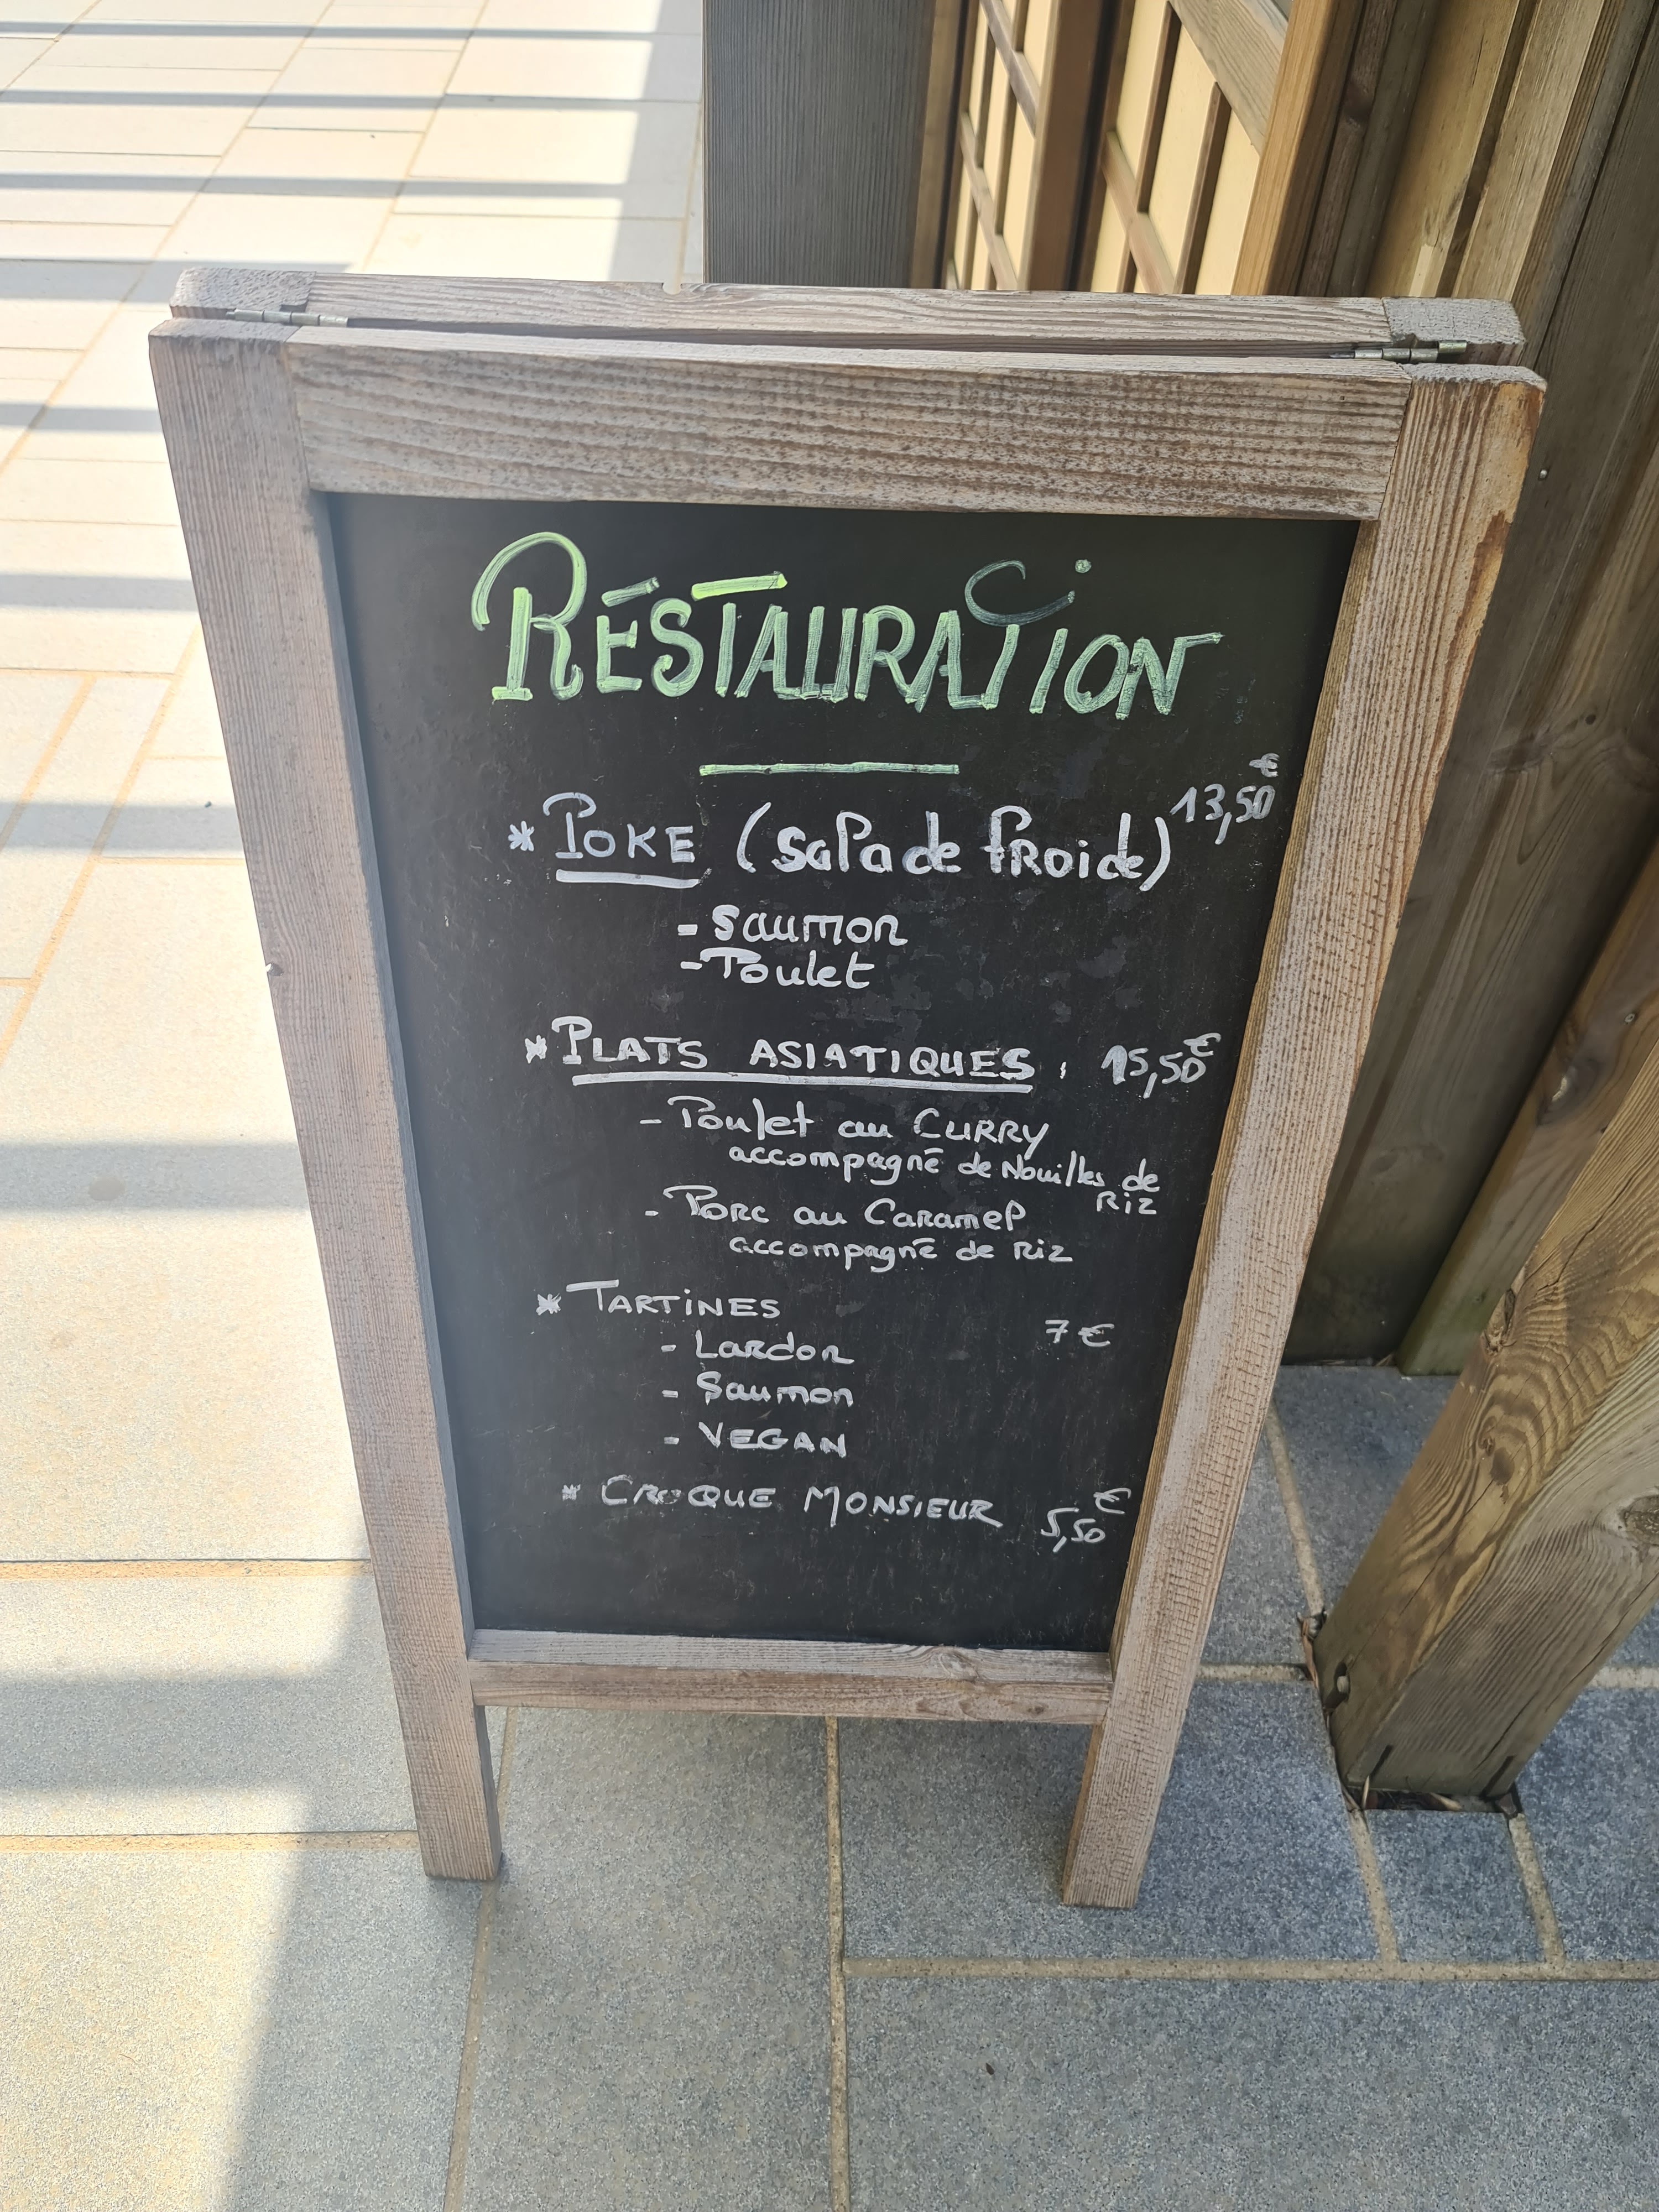 RÉSTAURATION
* POKE (salade froide) 13,50€
- Saumon
- Poulet
* PLATS ASIATIQUES : 15,50€
- Poulet au CURRY
accompagné de Nouilles de
Riz
- Porc au Caramel
accompagné de Riz
* TARTINES
7€
- Lardon
- Saumon
- VEGAN
* CROQUE MONSIEUR 5,50€